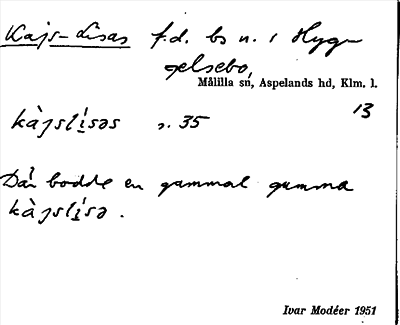 Kajs-Lisas f.d. bs n. i Hyge
gelsebo,
Målilla sn, Aspelands hd, Klm. l.
13
kàjslı́səs s. 35
Där bodde en gammal gumma
kàjslı́sə.
Ivar Modéer 1951